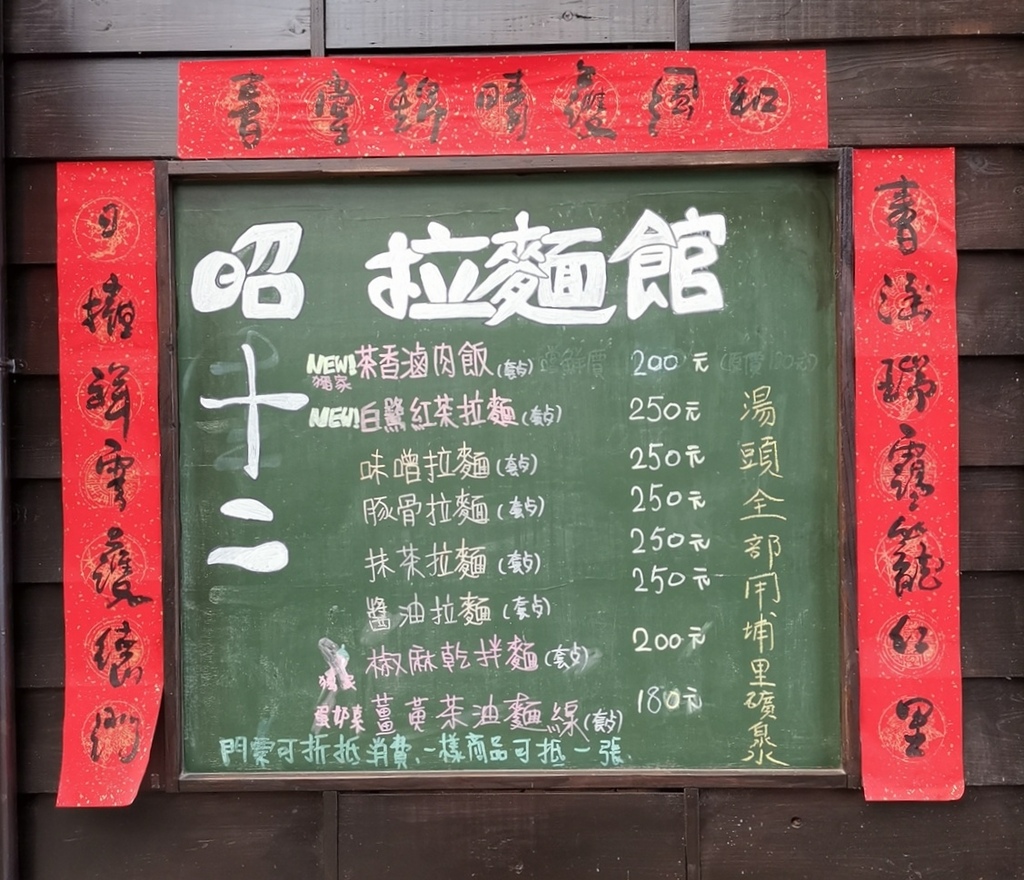 和風慶晴錦堂春
昭和十二 拉麵館
NEW! 獨家 茶香滷肉飯(套点) 200元
NEW! 白鷺紅茶拉麵(套点) 250元
味噌拉麵(套点) 250元
豚骨拉麵(套点) 250元
抹茶拉麵(套点) 250元
醬油拉麵(套点) 250元
獨家 椒麻乾拌麵(套点) 200元
蛋奶素 薑黃茶油麵線(套点) 180元
門票可折抵消費,一樣商品可抵一張.
湯頭全部用埔里礦泉
春 瑞靄籠仁里
日擁祥雲護德門